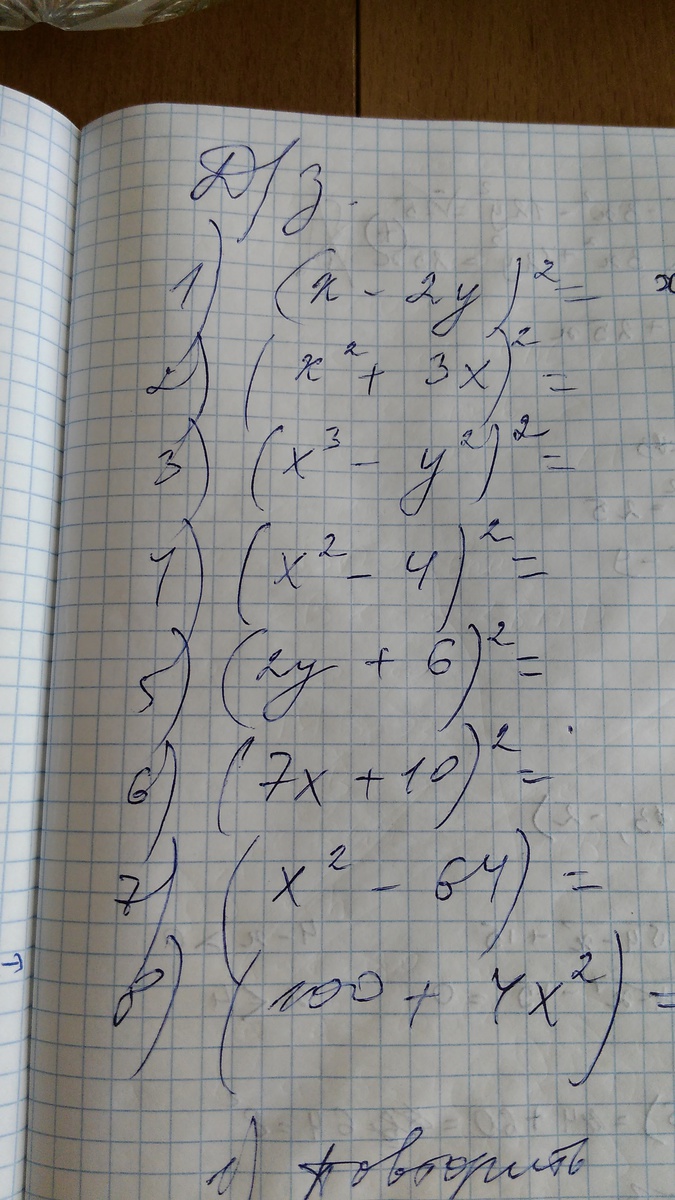 Д/з.
1) (x - 2y)² = x
2) (x² + 3x)² =
3) (x³ - y²)² =
4) (x² - 4)² =
5) (2y + 6)² =
6) (7x + 10)² =
7) (x² - 64) =
8) (100 + 4x²) =
1) повторить